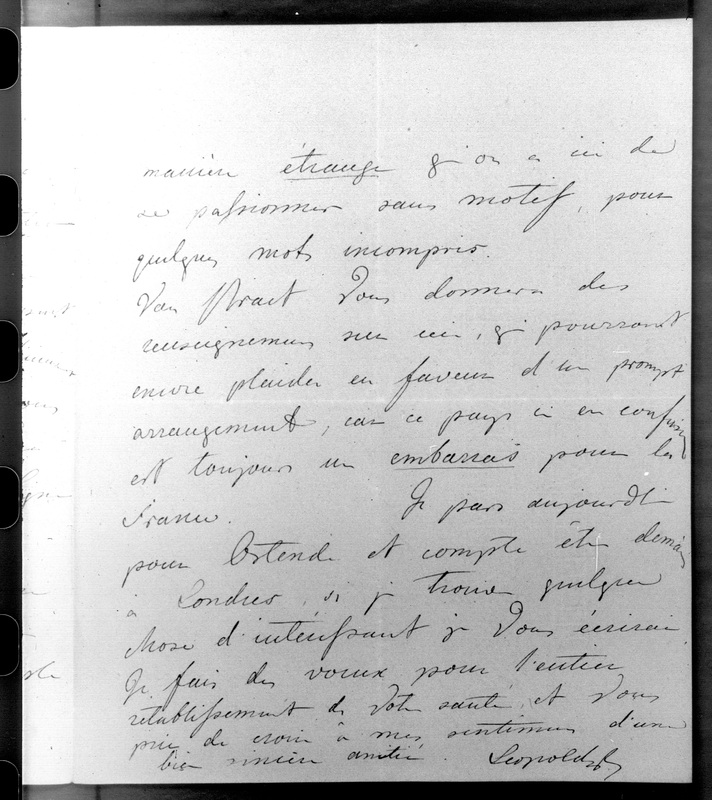 manière étrange qu'on a ici de
se passionner sans motif, pour
quelques mots incompris.
Van Praet Vous donnera des
renseignemens sur ceci, qui pourront
encore plaider en faveur d'un prompt
arrangement, car ce pays ci en confusion
est toujours un embarras pour la
France. Je pars aujourd'hui
pour Ostende et compte être demain
à Londres, si je trouve quelque
chose d'intéressant je Vous écrirai.
Je fais des voeux pour l'entier
rétablissement de Votre santé, et Vous
prie de croire à mes sentimens d'une
bien sincère amitié. Leopold